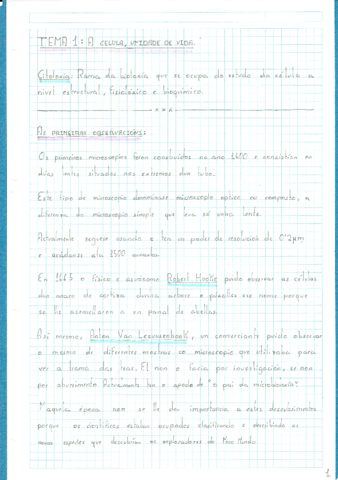 TEMA 1: A CÉLULA, UNIDADE DE VIDA.
Citoloxía: Rama da bioloxía que se ocupa do estudo da célula a
nivel estrutural, fisiolóxico e bioquímico.
As PRIMEIRAS OBSERVACIÓNS:
Os primeiros microscopios foron construídos no ano 1600 e consistían en
dúas lentes situadas nos extremos dun tubo.
Este tipo de microscopio denomínase microscopio óptico ou composto, a
diferenza do microscopio simple que leva só unha lente.
Actualmente séguese usando e ten un poder de resolución de 0'2µm
e
ata 1500 aumentos.
En 1665 o físico e astrónomo Robert Hooke puido observar as células
dun anaco de cortiza
e
ese nome porque
se lle asemellaron a un panal de abellas.
Así mesmo, Anton Van Leeuwenhoek, un comerciante puido observar
o mesmo de diferentes mostras co microscopio que utilizaba para
ver a trama das teas. El non o facía por investigación, se non
por aburrimento. Actualmente ten o apodo de "o pai da microbioloxía".
Naquela época non se lle deu importancia a estes descubrimentos
porque os científicos estaban ocupados clasificando e describindo as
novas especies que descubrían os exploradores do Novo Mundo.
1